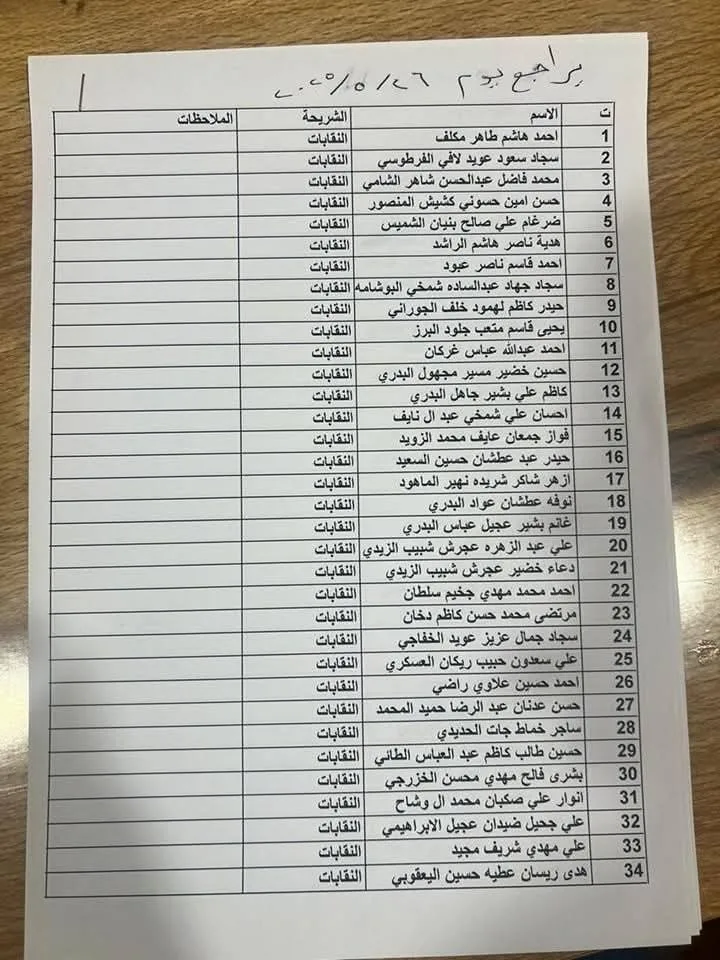 يراجع يوم ٢٦/٥/٢٠٢٥
ت الاسم الشريحة الملاحظات
1 احمد هاشم طاهر مكلف النقابات
2 سجاد سعود عويد لافي الفرطوسي النقابات
3 محمد فاضل عبدالحسن شاهر الشامي النقابات
4 حسن امين حسوني كشيش المنصور النقابات
5 ضرغام علي صالح بنيان الشميس النقابات
6 هدية ناصر هاشم الراشد النقابات
7 احمد قاسم ناصر عبود النقابات
8 سجاد جهاد عبدالساده شمخي البوشامه النقابات
9 حيدر كاظم لهمود خلف الجوراني النقابات
10 يحيى قاسم متعب جلود البرز النقابات
11 احمد عبدالله عباس غركان النقابات
12 حسين خضير مسير مجهول البدري النقابات
13 كاظم علي بشير جاهل البدري النقابات
14 احسان علي شمخي عبد ال نايف النقابات
15 فواز جمعان عايف محمد الزويد النقابات
16 حيدر عبد عطشان حسين السعيد النقابات
17 ازهر شاكر شريده نهير الماهود النقابات
18 نوفه عطشان عواد البدري النقابات
19 غانم بشير عجيل عباس البدري النقابات
20 علي عبد الزهره عجرش شبيب الزيدي النقابات
21 دعاء خضير عجرش شبيب الزيدي النقابات
22 احمد محمد مهدي جخيم سلطان النقابات
23 مرتضى محمد حسن كاظم دخان النقابات
24 سجاد جمال عزيز عويد الخفاجي النقابات
25 علي سعدون حبيب ريكان العسكري النقابات
26 احمد حسين علاوي راضي النقابات
27 حسن عدنان عبد الرضا حميد المحمد النقابات
28 ساجر خماط جات الحديدي النقابات
29 حسين طالب كاظم عبد العباس الطائي النقابات
30 بشرى فالح مهدي محسن الخزرجي النقابات
31 انوار علي صكبان محمد ال وشاح النقابات
32 علي جحيل ضيدان عجيل الابراهيمي النقابات
33 علي مهدي شريف مجيد النقابات
34 هدى ريسان عطيه حسين اليعقوبي النقابات